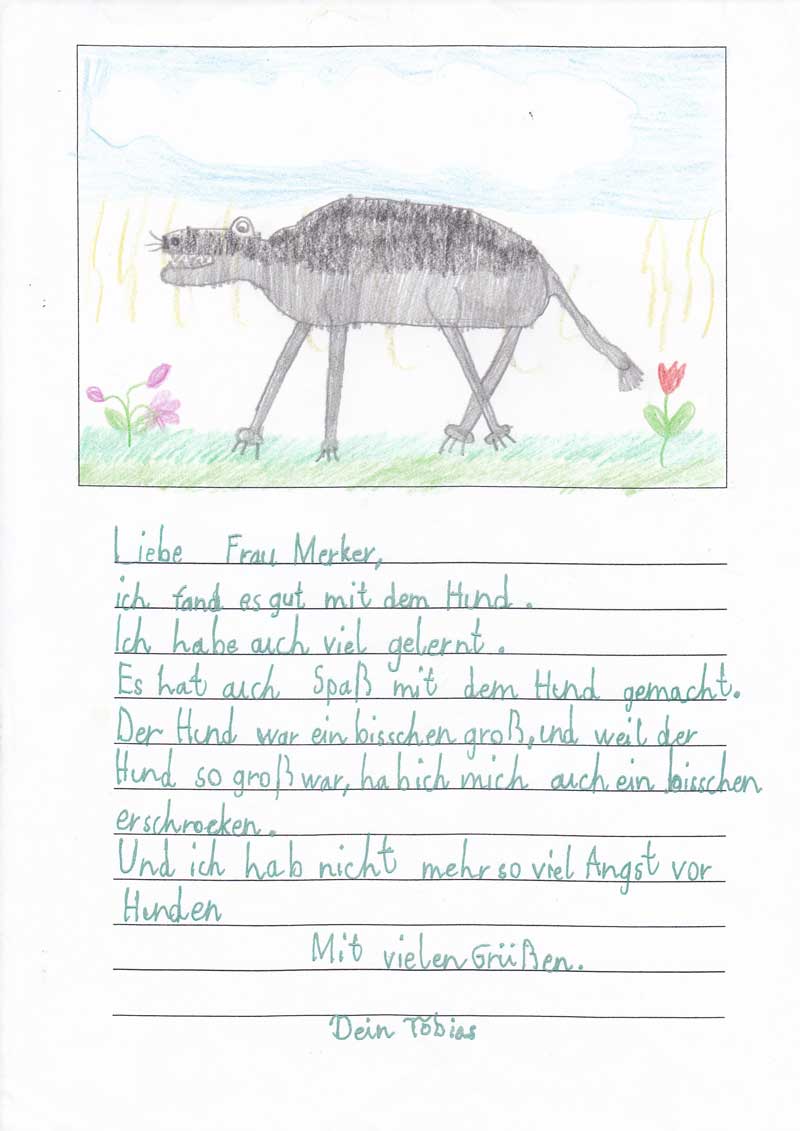 Liebe Frau Merker,
ich fand es gut mit dem Hund.
Ich habe auch viel gelernt.
Es hat auch Spaß mit dem Hund gemacht.
Der Hund war ein bisschen groß, und weil der
Hund so groß war, hab ich mich auch ein bisschen
erschrocken.
Und ich hab nicht mehr so viel Angst vor
Hunden
Mit vielen Grüßen.
Dein Tobias